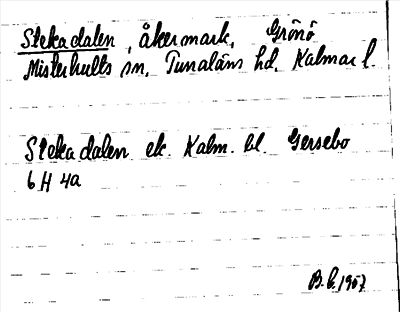 Stekadalen, åkermark, Grönö
Misterhults sn, Tunaläns hd, Kalmar l.
Stekadalen ek. Kalm. bl. Gersebo
6 H 4a
B.L. 1957